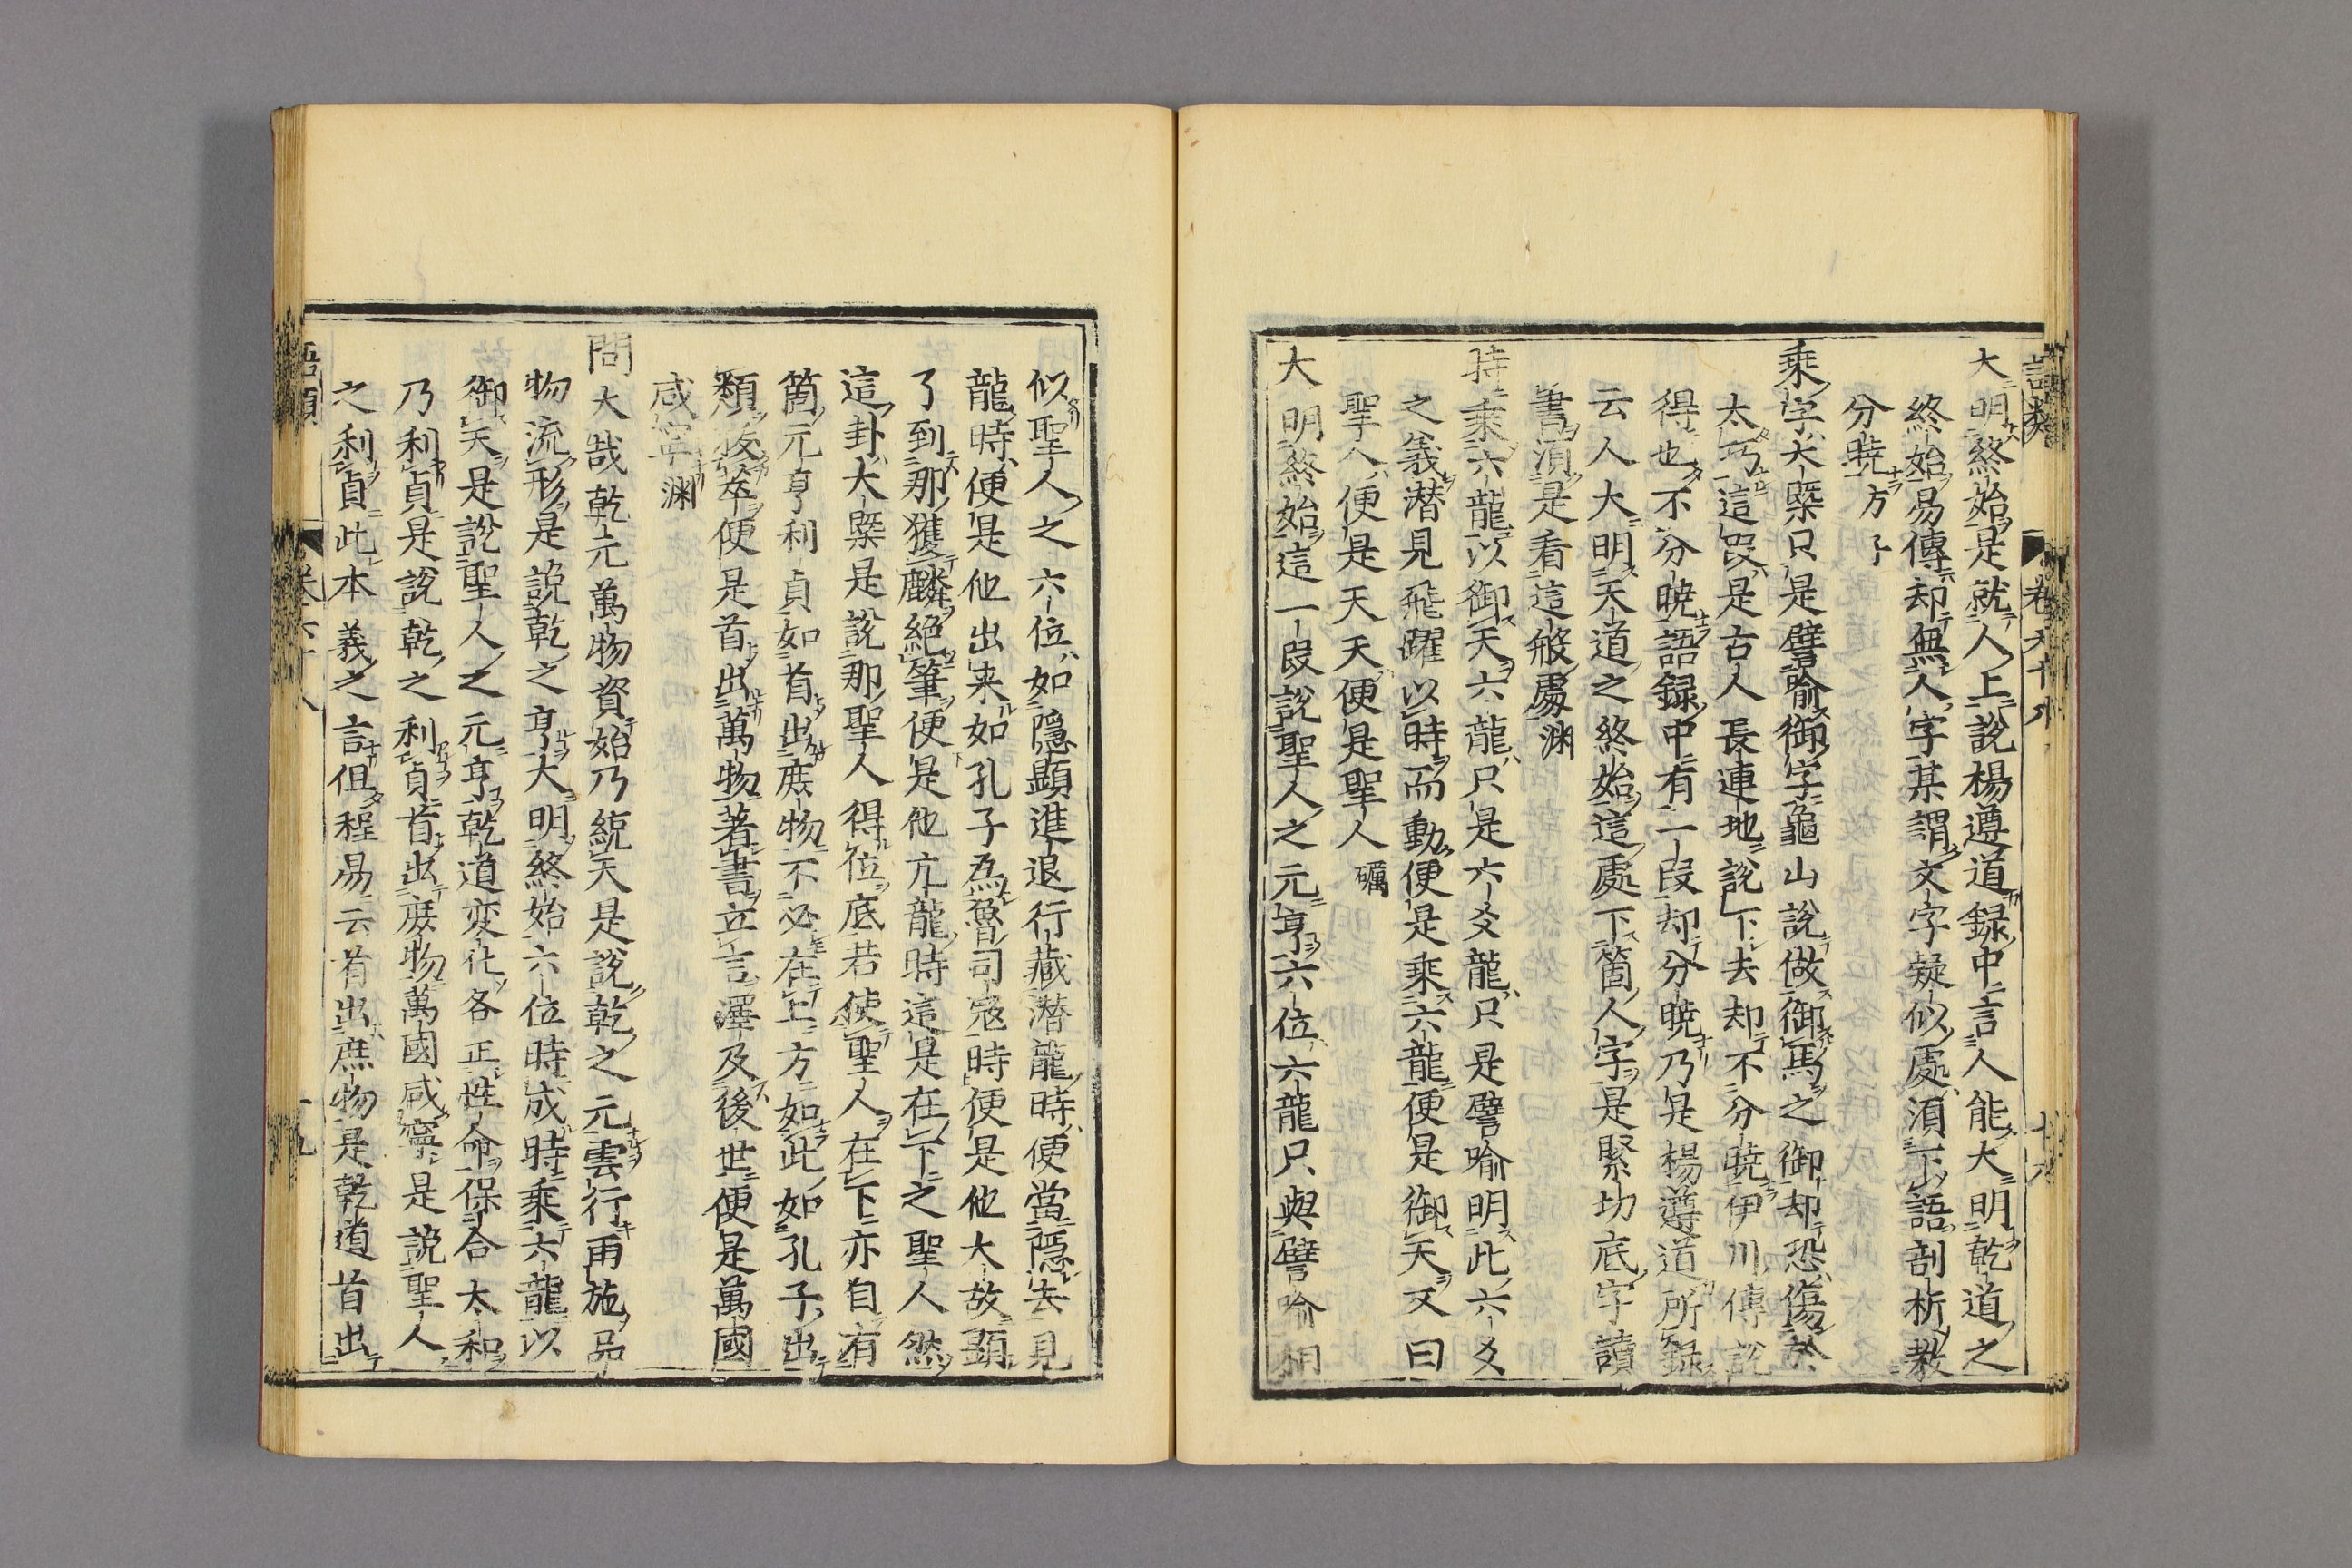 語類 卷六十八
大明終始是就人上說楊遵道録中言人能大明乾道之
終始易傳却無人字某謂文字疑似處湏下語剖析教
分曉方子
乘字大槩只是譬喻御字龜山說做御馬之御却恐傷於
太巧這段是古人長連地說下去却不分曉伊川傳說
得也不分曉語録中有一段却分曉乃是楊遵道所録
云人大明天道之終始這處下箇人字是緊切底字讀
書湏是看這般處渊
時乘六龍以御天六龍只是六爻龍只是譬喻明此六爻
之義潜見飛躍以時而動便是乘六龍便是御天又曰
聖人便是天天便是聖人礪
大明終始這一段說聖人之元亨六位六龍只與譬喻相
似聖人之六位如隱顯進退行藏潜龍時便當隱去見
龍時便是他出来如孔子為魯司寇時便是他大故顯
了到那獲麟絕筆便是他亢龍時這是在下之聖人然
這卦大槩是說那聖人得位底若使聖人在下亦自有
箇元亨利貞如首出庶物不必在上方如此如孔子出
類拔萃便是首出萬物著書立言澤及後世便是萬國
咸寧渊
問大哉乾元萬物資始乃統天是說乾之元雲行雨施品
物流形是說乾之亨大明終始六位時成時乘六龍以
御天是說聖人之元亨乾道変化各正性命保合太和
乃利貞是說乾之利貞首出庶物萬國咸寧是說聖人
之利貞此本義之言但程易云首出庶物是乾道首出
語類 卷六十八